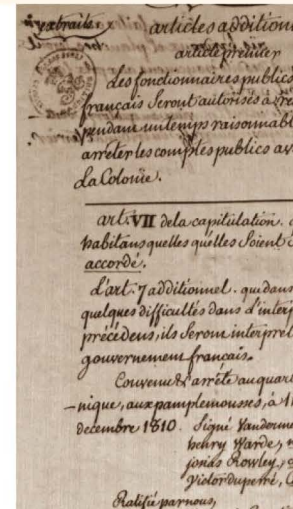 articles addition
article premier
Les fonctionnaires publics
français Seront autorisés à
pendant un temps raisonnabl
arrêter les comptes publics av
La Colonie.
art. VII de la capitulation.
habitans quelles quelles Soient
accordé.
L'art. 7 additionnel. qui dans
quelques difficultés dans d'interp
précédens, ils Seront interpret
gouvernement français.
Convenu & arrêté au quart
-nique, aux pamplemousses, à 1
decembre 1810. Signé Vanderme
henry Warde,
jonias Rowley,
Victor duperré,
Ratifié par nous,